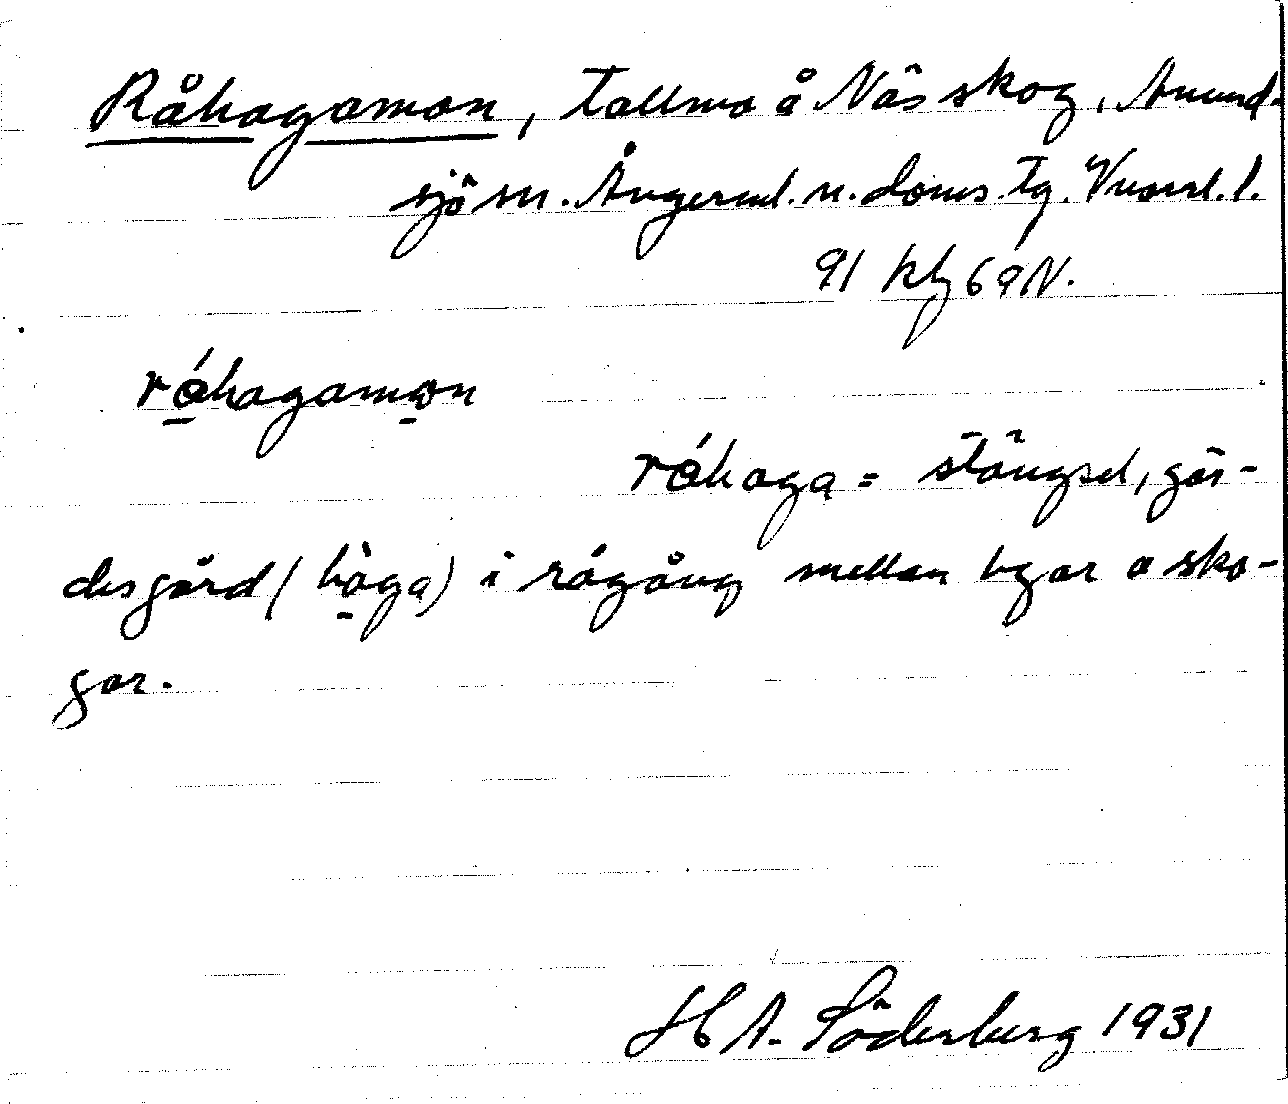 Råhagamon, tallmo å Näs skog, Anund-
sjö sn. Ångerml. n. doms. tg. Vnorrl. l.
91 kbl 69N.
rǻhagamo̲n
rǻhaga = stängsel, gär-
desgård (hàga) i rågång mellan byar o sko-
gar.
H A. Söderberg 1931